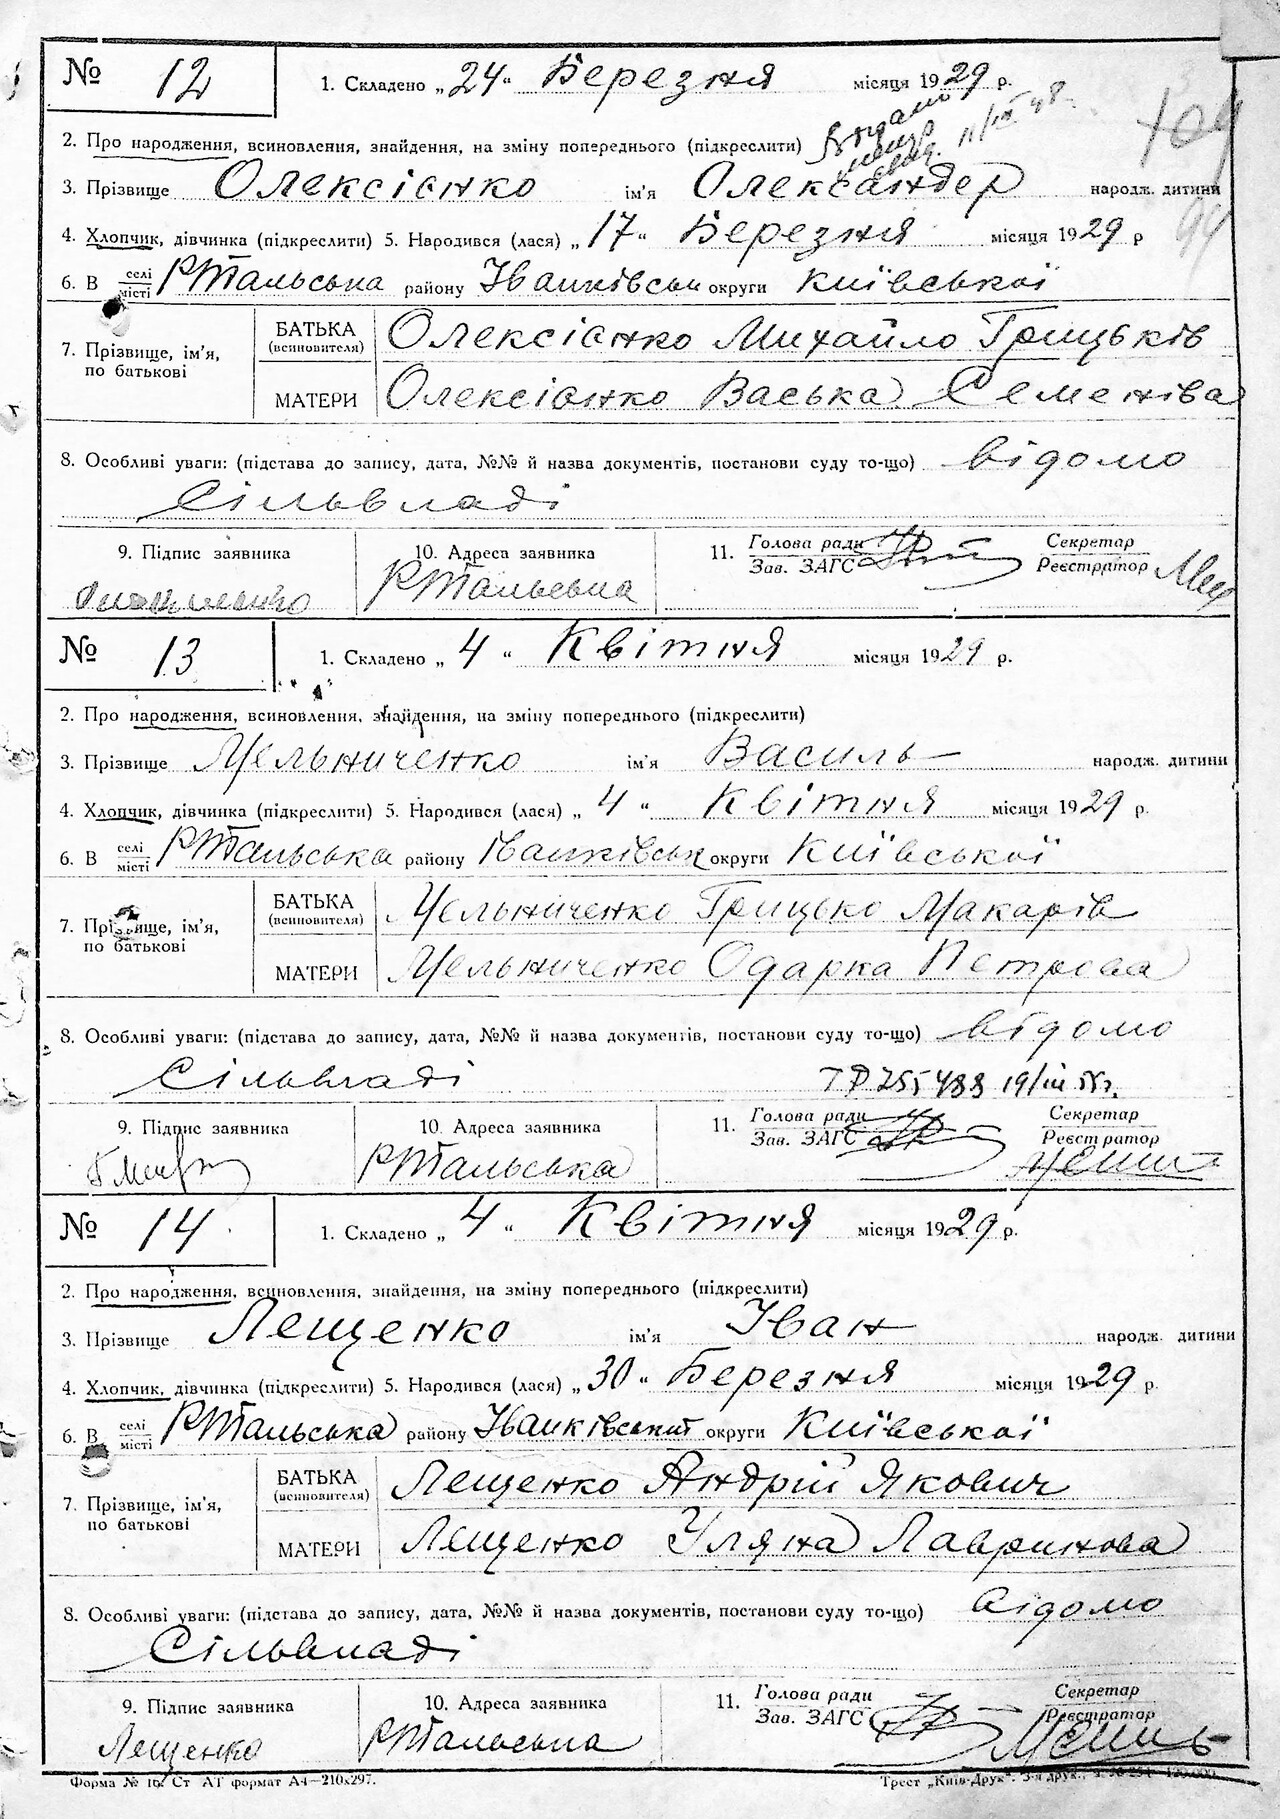 № 12 1. Складено „24“ Березня місяця 1929 р.
2. Про народження, всиновлення, знайдення, на зміну попереднього (підкреслити)
3. Прізвище Олексієнко ім'я Олександер народж. дитини
4. Хлопчик, дівчинка (підкреслити) 5. Народився (лася) „17“ Березня місяця 1929 р
6. В селі місті РТальська району Іванківськ округи Київської
7. Прізвище, ім'я, по батькові
БАТЬКА (всиновителя) Олексієнко Михайло Грицьків
МАТЕРИ Олексієнко Васька Семеніва
8. Особливі уваги: (підстава до запису, дата, №№ й назва документів, постанови суду то-що) відомо
сільвладі
9. Підпис заявника 10. Адреса заявника 11. Голова ради Секретар
Зав. ЗАГС Реєстратор
РТальська
№ 13 1. Складено „4“ Квітня місяця 1929 р.
2. Про народження, всиновлення, знайдення, на зміну попереднього (підкреслити)
3. Прізвище Мельниченко ім'я Василь народж. дитини
4. Хлопчик, дівчинка (підкреслити) 5. Народився (лася) „4“ Квітня місяця 1929 р.
6. В селі місті РТальська району Іванківськ округи Київської
7. Прізвище, ім'я, по батькові
БАТЬКА (всиновителя) Мельниченко Грицько Макарів
МАТЕРИ Мельниченко Одарка Петрова
8. Особливі уваги: (підстава до запису, дата, №№ й назва документів, постанови суду то-що) відомо
сільвладі
9. Підпис заявника 10. Адреса заявника 11. Голова ради Секретар
Зав. ЗАГС Реєстратор
РТальська
№ 14 1. Складено „4“ Квітня місяця 1929 р.
2. Про народження, всиновлення, знайдення, на зміну попереднього (підкреслити)
3. Прізвище Лещенко ім'я Іван народж. дитини
4. Хлопчик, дівчинка (підкреслити) 5. Народився (лася) „30“ Березня місяця 1929 р.
6. В селі місті РТальська району Іванківський округи Київської
7. Прізвище, ім'я, по батькові
БАТЬКА (всиновителя) Лещенко Андрій Якович
МАТЕРИ Лещенко Уляна Лавринова
8. Особливі уваги: (підстава до запису, дата, №№ й назва документів, постанови суду то-що) відомо
Сільвладі
9. Підпис заявника 10. Адреса заявника 11. Голова ради Секретар
Зав. ЗАГС Реєстратор
Лещенко РТальська
Форма № 16. Ст АТ формат А4—210х297. Трест „Київ-Друк“. 3-я друк.